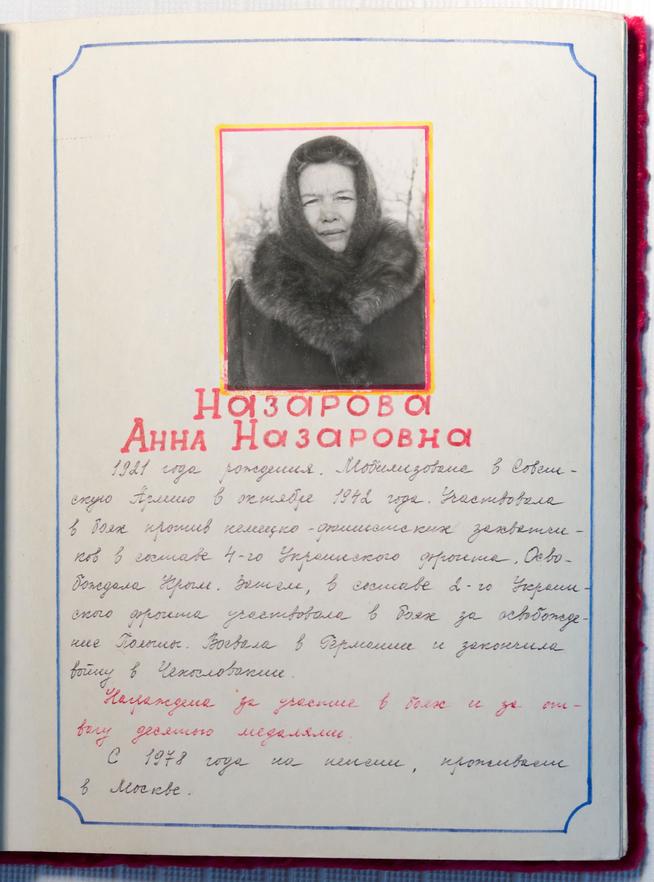 Назарова
Анна Назаровна
1921 года рождения. Мобилизована в Совет-
скую Армию в октябре 1942 года. Участвовала
в боях против немецко-фашистских захватчи-
ков в составе 4-го Украинского фронта. Осво-
бождала Крым. Затем, в составе 2-го Украин-
ского фронта участвовала в боях за освобожде-
ние Польши. Воевала в Германии и закончила
войну в Чехословакии.
Награждена за участие в боях и за от-
вагу десятью медалями.
С 1978 года на пенсии, проживает
в Москве.